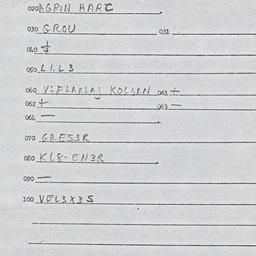 020 AGRIN HARC
030 GROU 031
040 $
050 L1L3
060 KOLLAN 061 +
062 + 063 —
064 —
070 GRES3R
080 KL8-EN3R
090 —
100 VEL3X3S